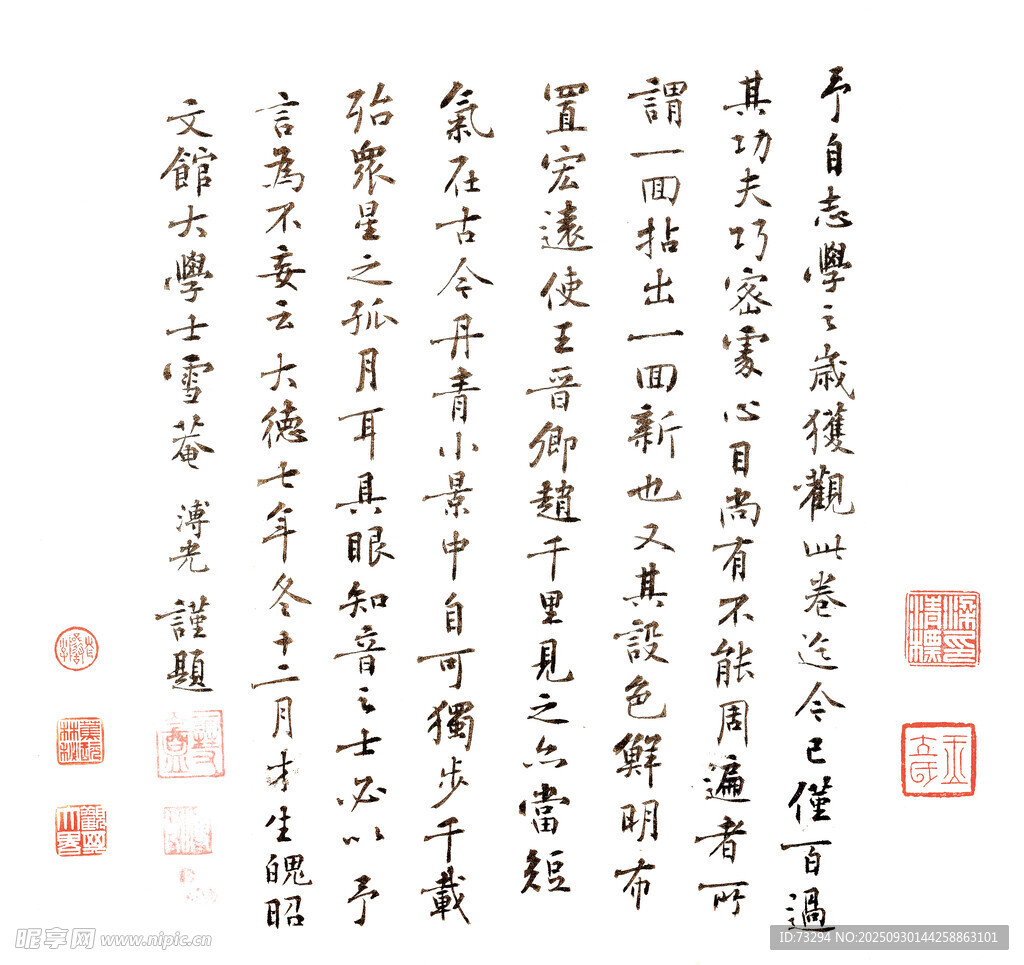 予自志學之歲獲觀此卷迄今已僅百過
其功夫巧密處心目尚有不能周遍者所
謂一面拈出一面新也又其設色鮮明布
置宏遠使王晉卿趙千里見之亦當短
氣在古今丹青小景中自可獨步千載
殆衆星之孤月耳具眼知音之士必以予
言為不妄云大德七年冬十二月才生魄昭
文館大學士雪菴溥光謹題
昵享网 www.nipic.cn
ID:73294 NO:20250930144258863101